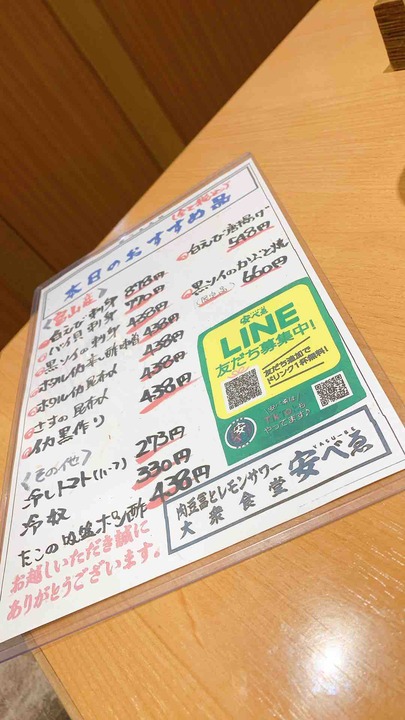 本日のおすすめ品
(全て税込)
〈富山産〉
白えび刺身 878円
バイ貝刺身 770円
黒ソイの刺身 438円
ホタルイカ 438円
ホタルイカ 438円
さすの昆布〆 438円
イカ黒作り 438円
白えび唐揚げ 548円
黒ソイのかぶと焼 660円
〈その他〉
冷しトマト(ハーフ) 273円
冷奴 330円
たこの吸盤ポン酢 438円
お越しいただき誠に
ありがとうございます。
安べゑ
LINE
友だち募集中!
友だち追加で
ドリンク1杯無料!
肉豆冨とレモンサワー
大衆食堂 安べゑ
YASU-BEE